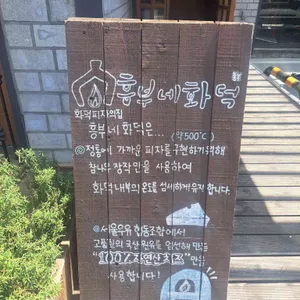 흥부네화덕
화덕피자의집
흥부네 화덕은... (약500℃)
◎정통에 가까운 피자를 구현하기 위해
참나무 장작만을 사용하여
화덕내부의 온도를 섬세하게 유지 합니다.
◎서울우유 협동조합에서
고품질의 국산 원유로 엄선해 만든
"100% 자연산치즈"만을
사용합니다!